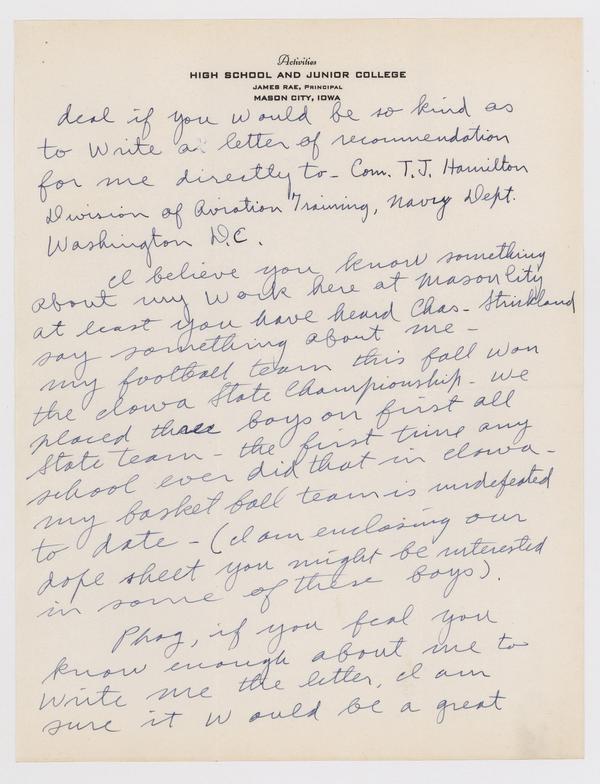 Activities
HIGH SCHOOL AND JUNIOR COLLEGE
JAMES RAE, PRINCIPAL
MASON CITY, IOWA
deal if you would be so kind as
to write a letter of recommendation
for me directly to - Com. T.J. Hamilton
Division of Aviation Training, Navy Dept.
Washington D.C.
I believe you know something
about my work here at Mason City
at least you have heard Chas. Strickland
say something about me -
my football team this fall won
the Iowa State Championship. We
placed three boys on first all
State team - the first time any
school ever did that in Iowa -
my basket ball team is undefeated
to date - (I am enclosing our
dope sheet you might be interested
in some of these boys).
Phog, if you feal you
know enough about me to
write me the letter, I am
sure it would be a great